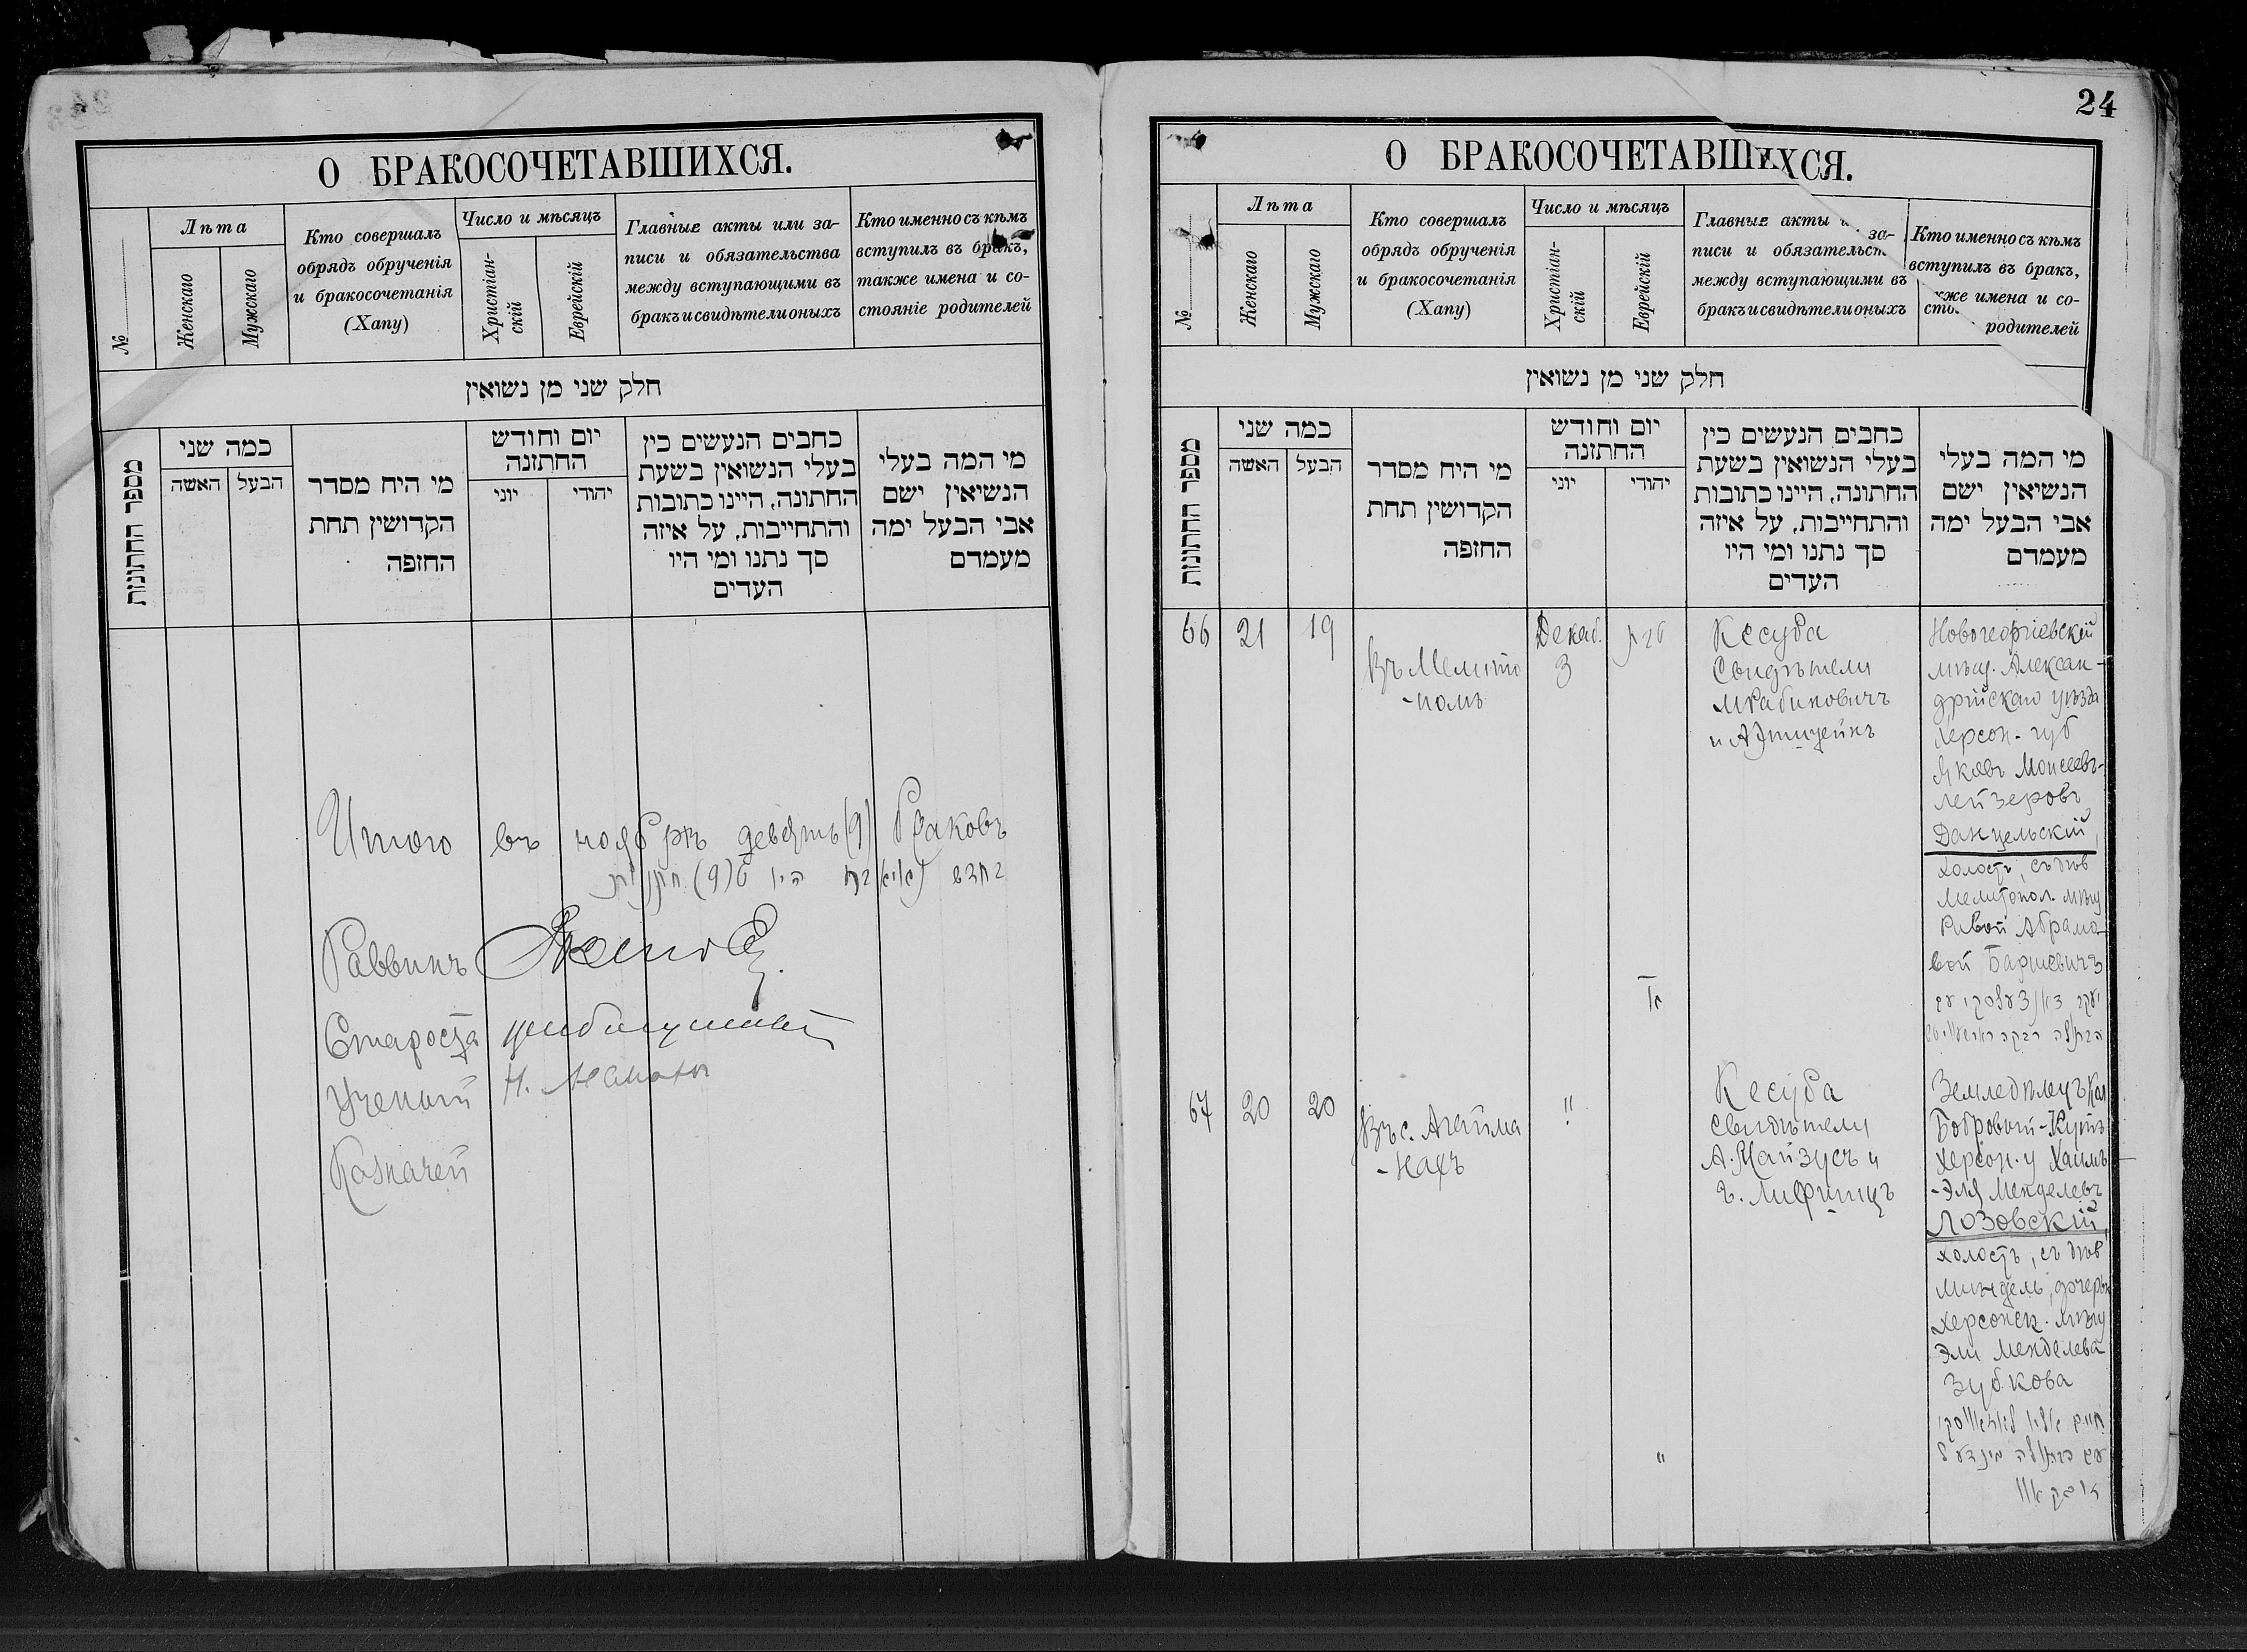 О БРАКОСОЧЕТАВШИХСЯ.
№
Лѣта
Женскаго
Мужскаго
Кто совершалъ
обрядъ обрученія
и бракосочетанія
(Хапу)
Число и мѣсяцъ
Христіан-
скій
Еврейскій
Главные акты или за-
писи и обязательства
между вступающими въ
бракъ и свидѣтели оныхъ
Кто именно съ кѣмъ
вступилъ въ бракъ,
также имена и со-
стояніе родителей
חלק שני מן נשואין
מספר החתונות
כמה שני
האשה
הבעל
מי היח מסדר
הקדושין תחת
החזפה
יום וחודש
החתזנה
יוני
יהודי
כחבים הנעשים כין
בעלי הנשואין בשעת
החתונה, היינו כתובות
והתחייבות, על איזה
סך נתנו ומי היו
העדים
מי המה בעלי
הנשיאין ישם
אבי הבעל ימה
מעמדם
Итого въ ноябрѣ девять (9) браковъ
היו ט (9)
Раввинъ
Староста
Ученый
Казначей
24
О БРАКОСОЧЕТАВШИХСЯ.
№
Лѣта
Женскаго
Мужскаго
Кто совершалъ
обрядъ обрученія
и бракосочетанія
(Хапу)
Число и мѣсяцъ
Христіан-
скій
Еврейскій
Главные акты за-
писи и обязательст
между вступающими въ
бракъ и свидѣтели оныхъ
Кто именно съ кѣмъ
вступилъ въ бракъ,
кже имена и со-
сто родителей
חלק שני מן נשואין
מספר החתונות
כמה שני
האשה
הבעל
מי היח מסדר
הקדושין תחת
החזפה
יום וחודש
החתזנה
יוני
יהודי
כחבים הנעשים כין
בעלי הנשואין בשעת
החתונה, היינו כתובות
והתחייבות, על איזה
סך נתנו ומי היו
העדים
מי המה בעלי
הנשיאין ישם
אבי הבעל ימה
מעמדם
66
21
19
Въ Мелито
-полѣ
Декаб.
3
טבת
Кесуба
Свидѣтели
М Рабиновичъ
и А Эпштейнъ
Новогеоргіевскій
мѣщ. Алексан-
дрійскаго уѣзда
Херсон. губ
Яковъ Моисеевъ-
Лейзеровъ
Данцельскій,
холостъ, съ дѣв
Мелитопол. мѣщ
Ривой Абрамо-
вой
67
20
20
Въ с. Агайма
-нахъ
"
Кесуба
свидѣтели
А. Майзусъ и
Лифшицъ
Земледѣлецъ Кол
Бобровый-Кутъ
Херсон. у Хаимъ
-Эля Менделевъ
Лозовскій,
холостъ, съ дѣв
Миндель, дочерью
Херсонск. мѣщ
Эли Менделева
Зубкова
"